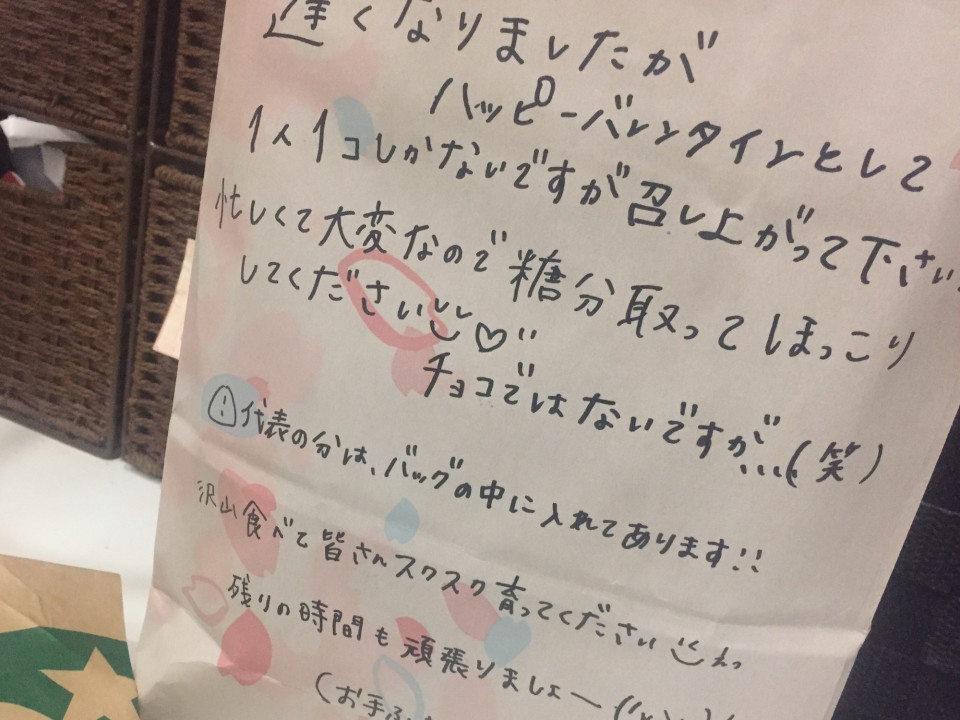 遅くなりましたが
ハッピーバレンタインとして
1人1コしかないですが召し上がって下さい
忙しくて大変なので糖分取ってほっこり
してください♡
チョコではないですが、、、(笑)
代表の分は、バッグの中に入れてあります!!
沢山食べて皆さんスクスク育ってください
残りの時間も頑張りましょー
(お手ふ